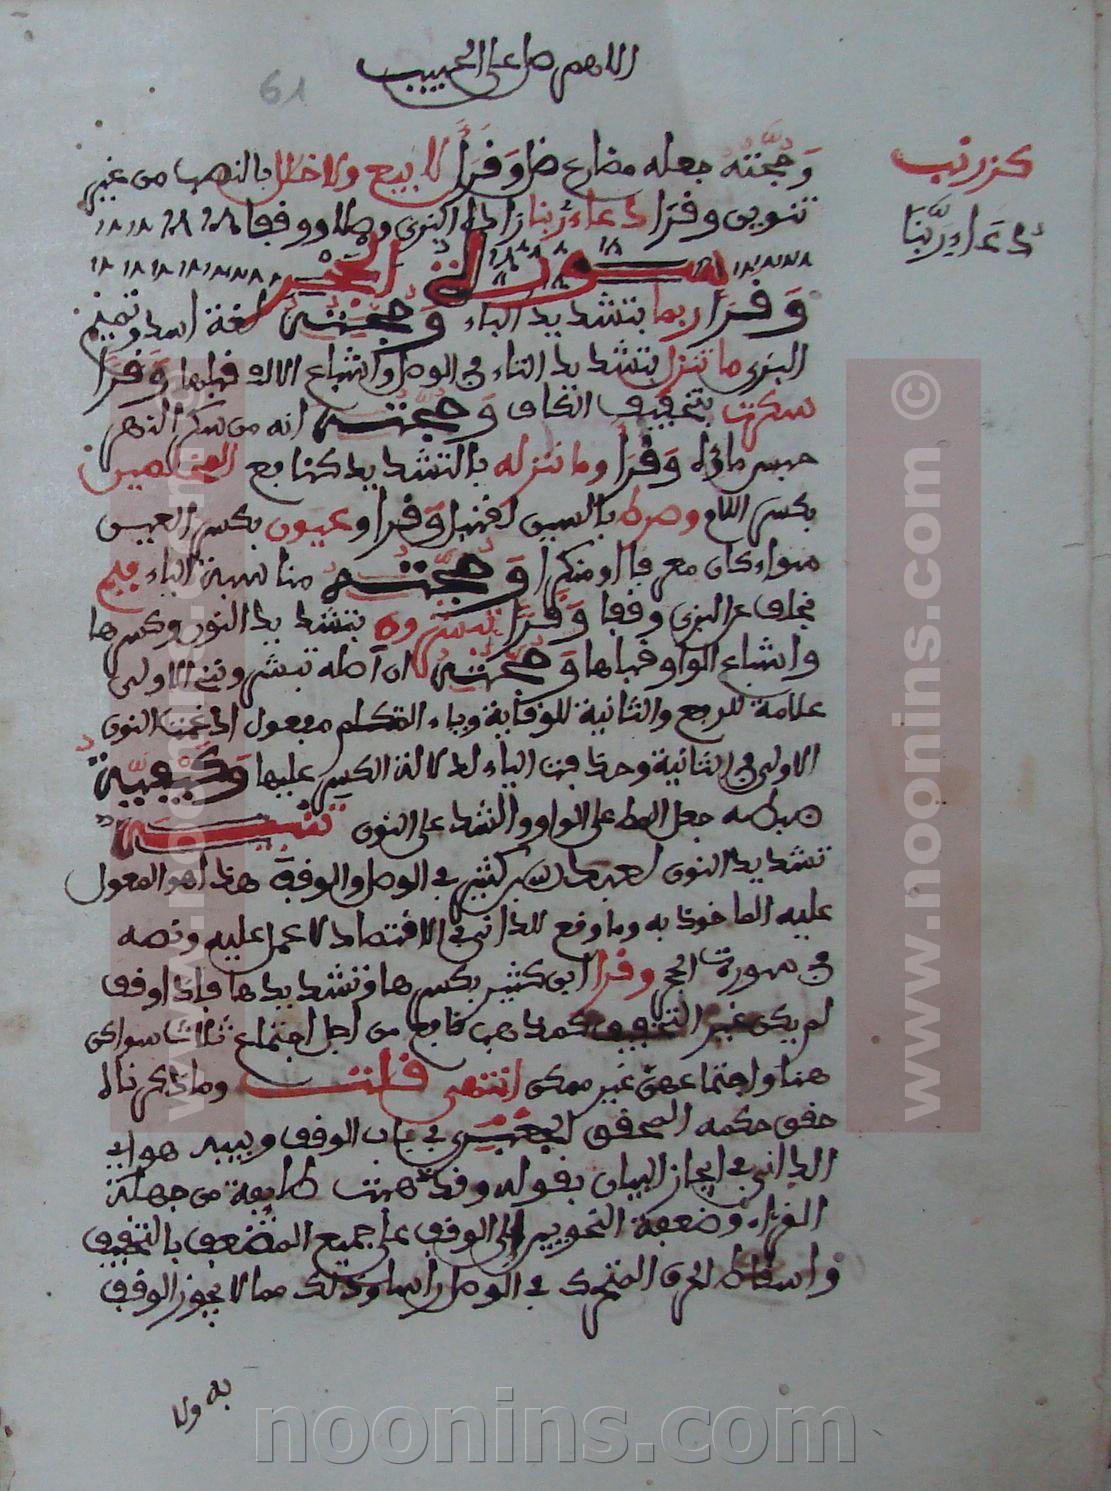 اللاهم صل على الحبيب
61
وحجته جعله مضارع ضل وقرأ لا بيع ولا خلل بالنصب من غير
تنوين وقرا دعاء ربنا زاد له البزي وصلا ووقفا
كررت
دعاء ربنا
سورة الحجر
وقرا ربما بتشديد الباء وحجته لغة اسد وتميم
البزي ما تنزل بتشديد التاء في الوصل واشباع الالف قبلها وقرا
سكرت بتخفيف الكاف وحجته انه من سكر النهر
حبس ماؤه وقرأ وما ننزله بالتشديد كنافع المخلصين
بكسر اللام وصرط بالسين لقنبل وقرا وعيون بكسر العين
سواء كان معرفا او منكرا وحجته مناسبة الياء فبم
بخلف عن البزي وقفا وقرأ تبشرون بتشديد النون وكسرها
واشباع الواو قبلها وحجته ان اصله تبشرونني الاولى
علامة للرفع والثانية للوقاية وياء المتكلم مفعول ادغمت النون
الاولى في الثانية وحذفت الياء لدلالة الكسر عليها وكيفية
ضبطه جعل المط على الواو والشد على النون تنبيه
تشديد النون لابن كثير في الوصل والوقف هذا هو المعول
عليه الماخوذ به وما وقع للداني في الاقتصاد لا عمل عليه ونصه
في سورة الحجر وقرا ابن كثير بكسرها وتشديدها فاذا وقف
لم يكن غير التخفيف كمذهب نافع من اجل اجتماع ثلاث سواكن
هنا واجتماعهن غير ممكن انتهى قلت وما ذكرناه
حقق حكمه المحقق الجعبري في باب الوقف وبينه هو اي
الداني في ايجاز البيان بقوله وقد ذهبت طايفة من جهلة
القراء وضعفة النحويين الى الوقف على جميع المضعف بالتخفيف
واسقاط الحرف المتحرك في الوصل راسا وذلك مما لا يجوز الوقف
به ولا
www.noonins.com ©
www.noonins.com ©
noonins.com